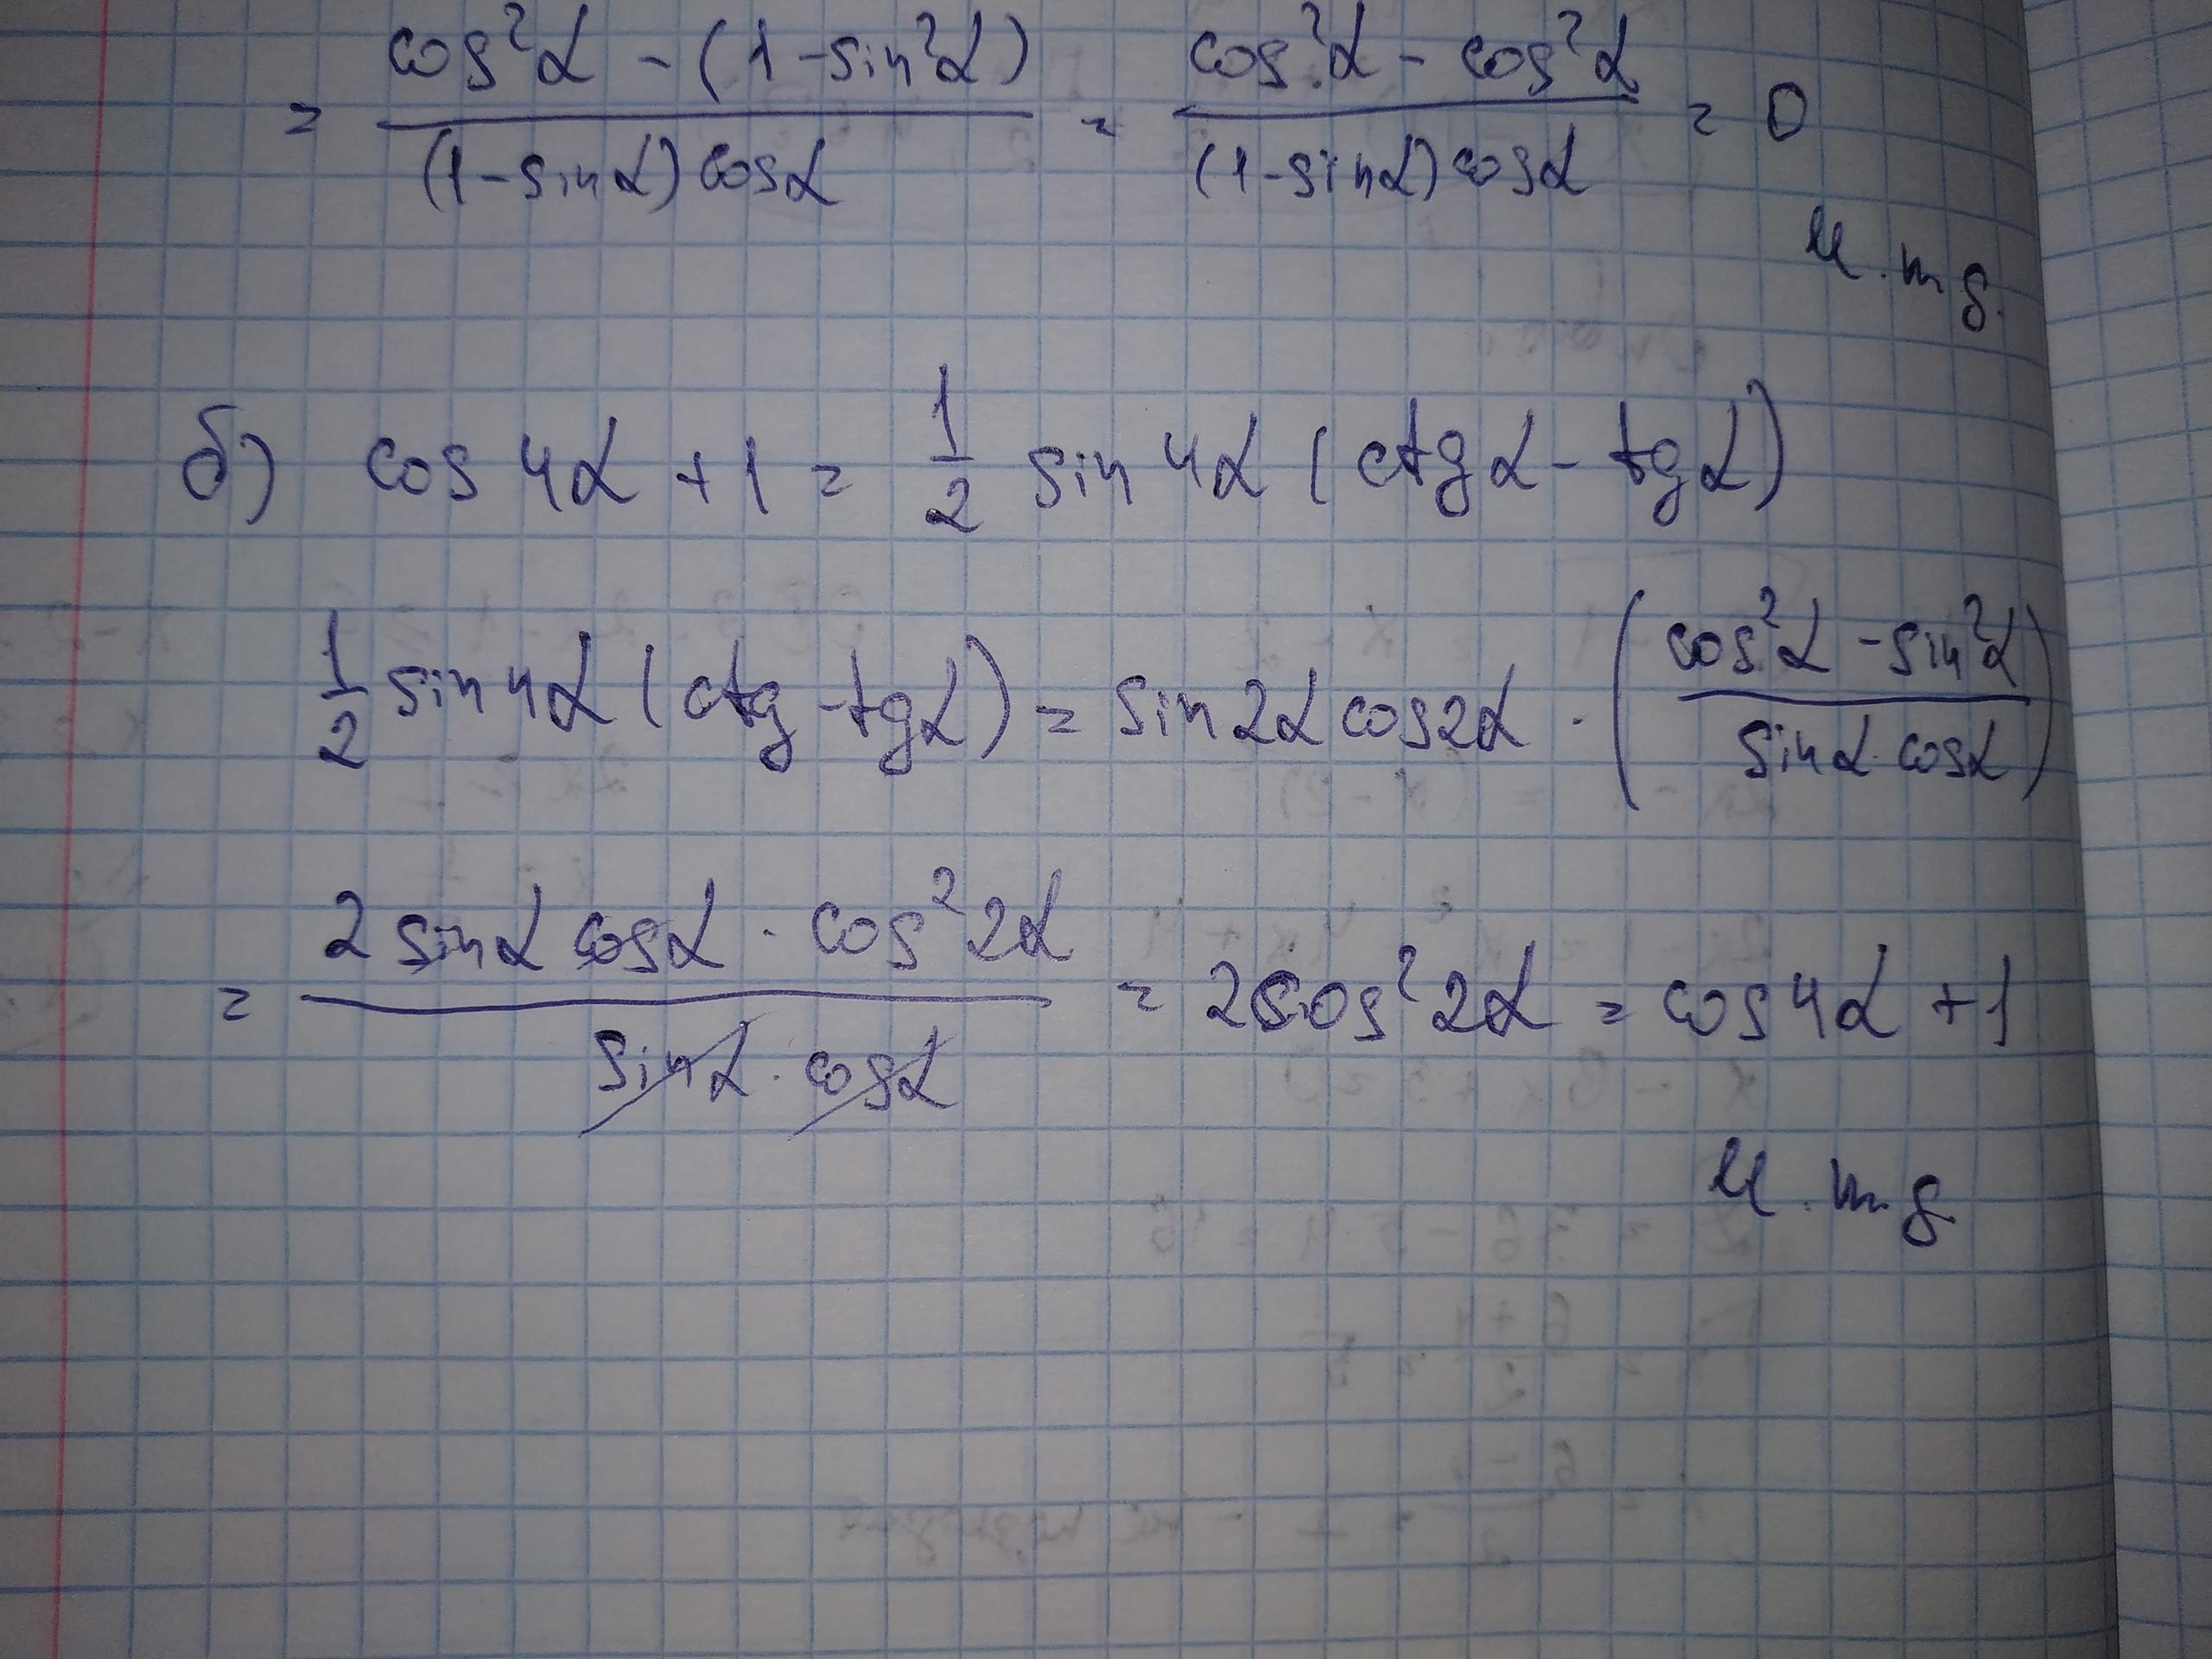 = cos²α - (1 - sin²α) / (1 - sinα) cosα = cos²α - cos²α / (1 - sinα) cosα = 0
ч.т.д.
б) cos 4α + 1 = 1/2 sin 4α (ctg α - tg α)
1/2 sin 4α (ctg - tg α) = sin 2α cos 2α · (cos²α - sin²α / sin α · cos α)
= 2 sin α cos α · cos² 2α / sin α · cos α = 2 cos² 2α = cos 4α + 1
ч.т.д